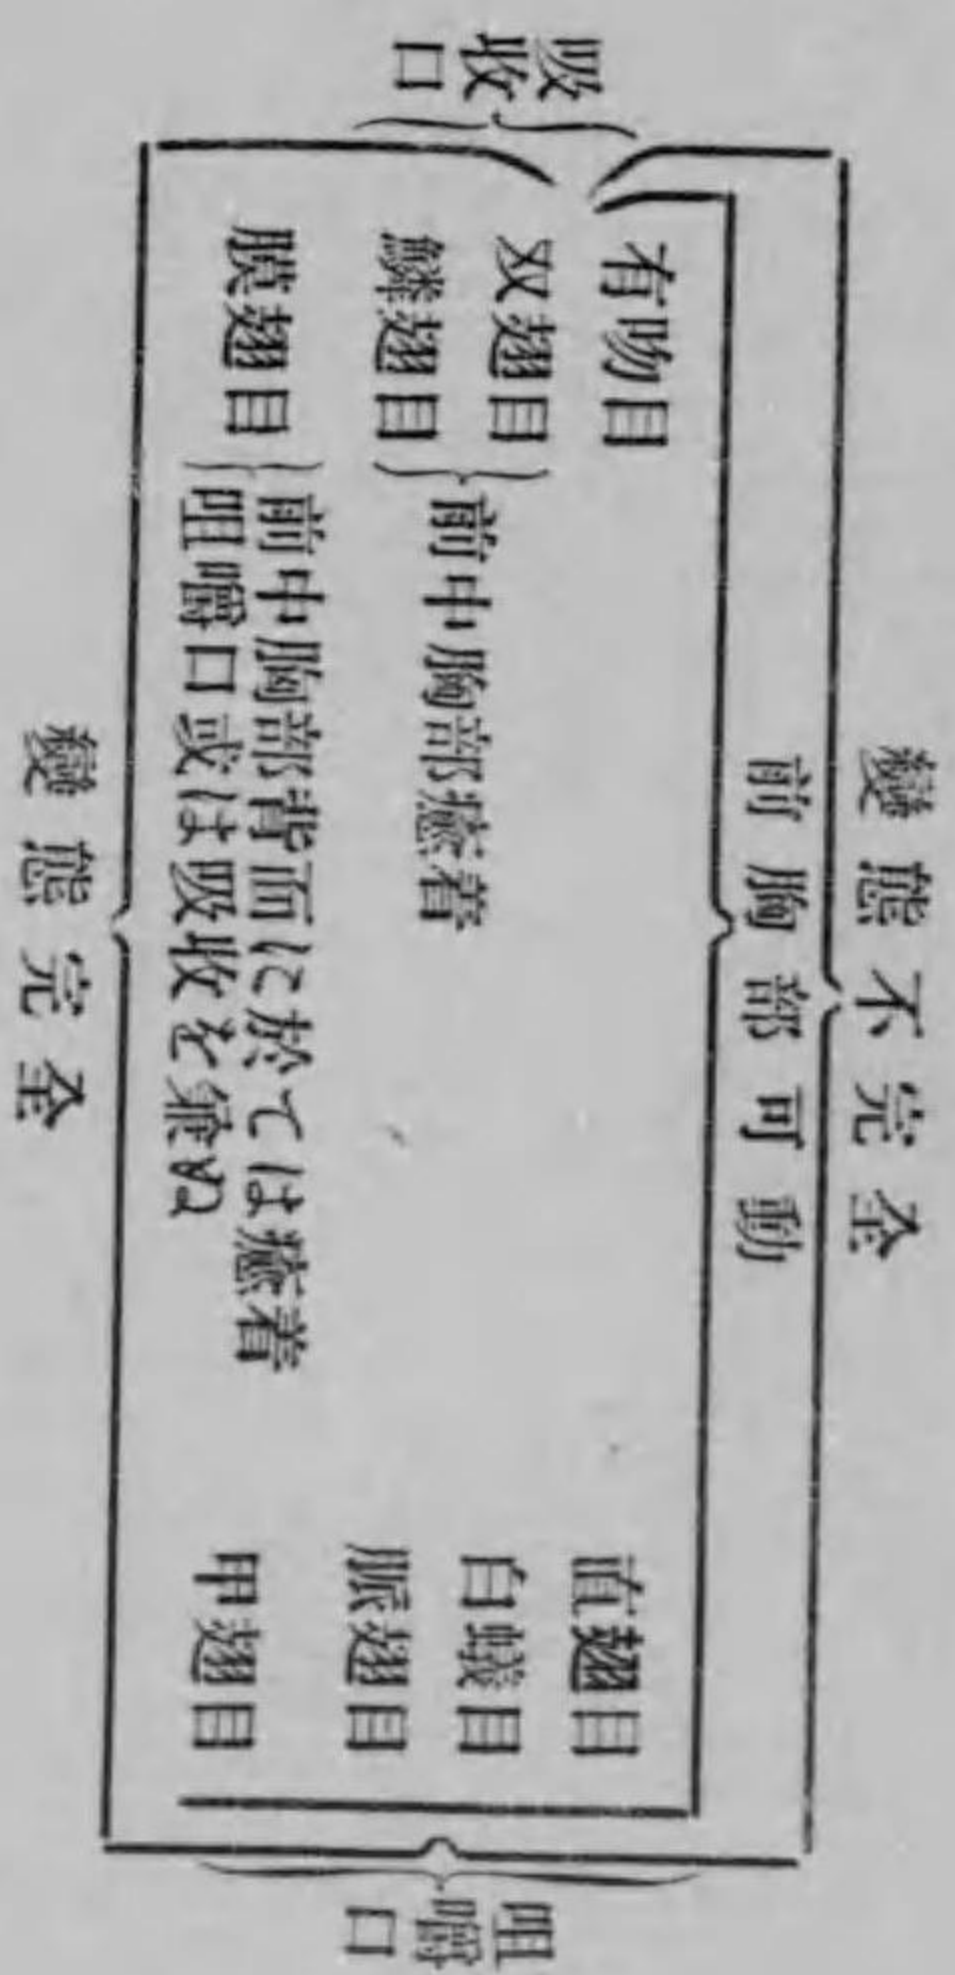 變態不完全
前胸部可動
吸收口
有吻目
双翅目
鱗翅目
前中胸部癒着
膜翅目
前中胸部背面に於ては癒着
咀嚼口或は吸收を兼ぬ
直翅目
白蟻目
脈翅目
甲翅目
咀嚼口
變態完全